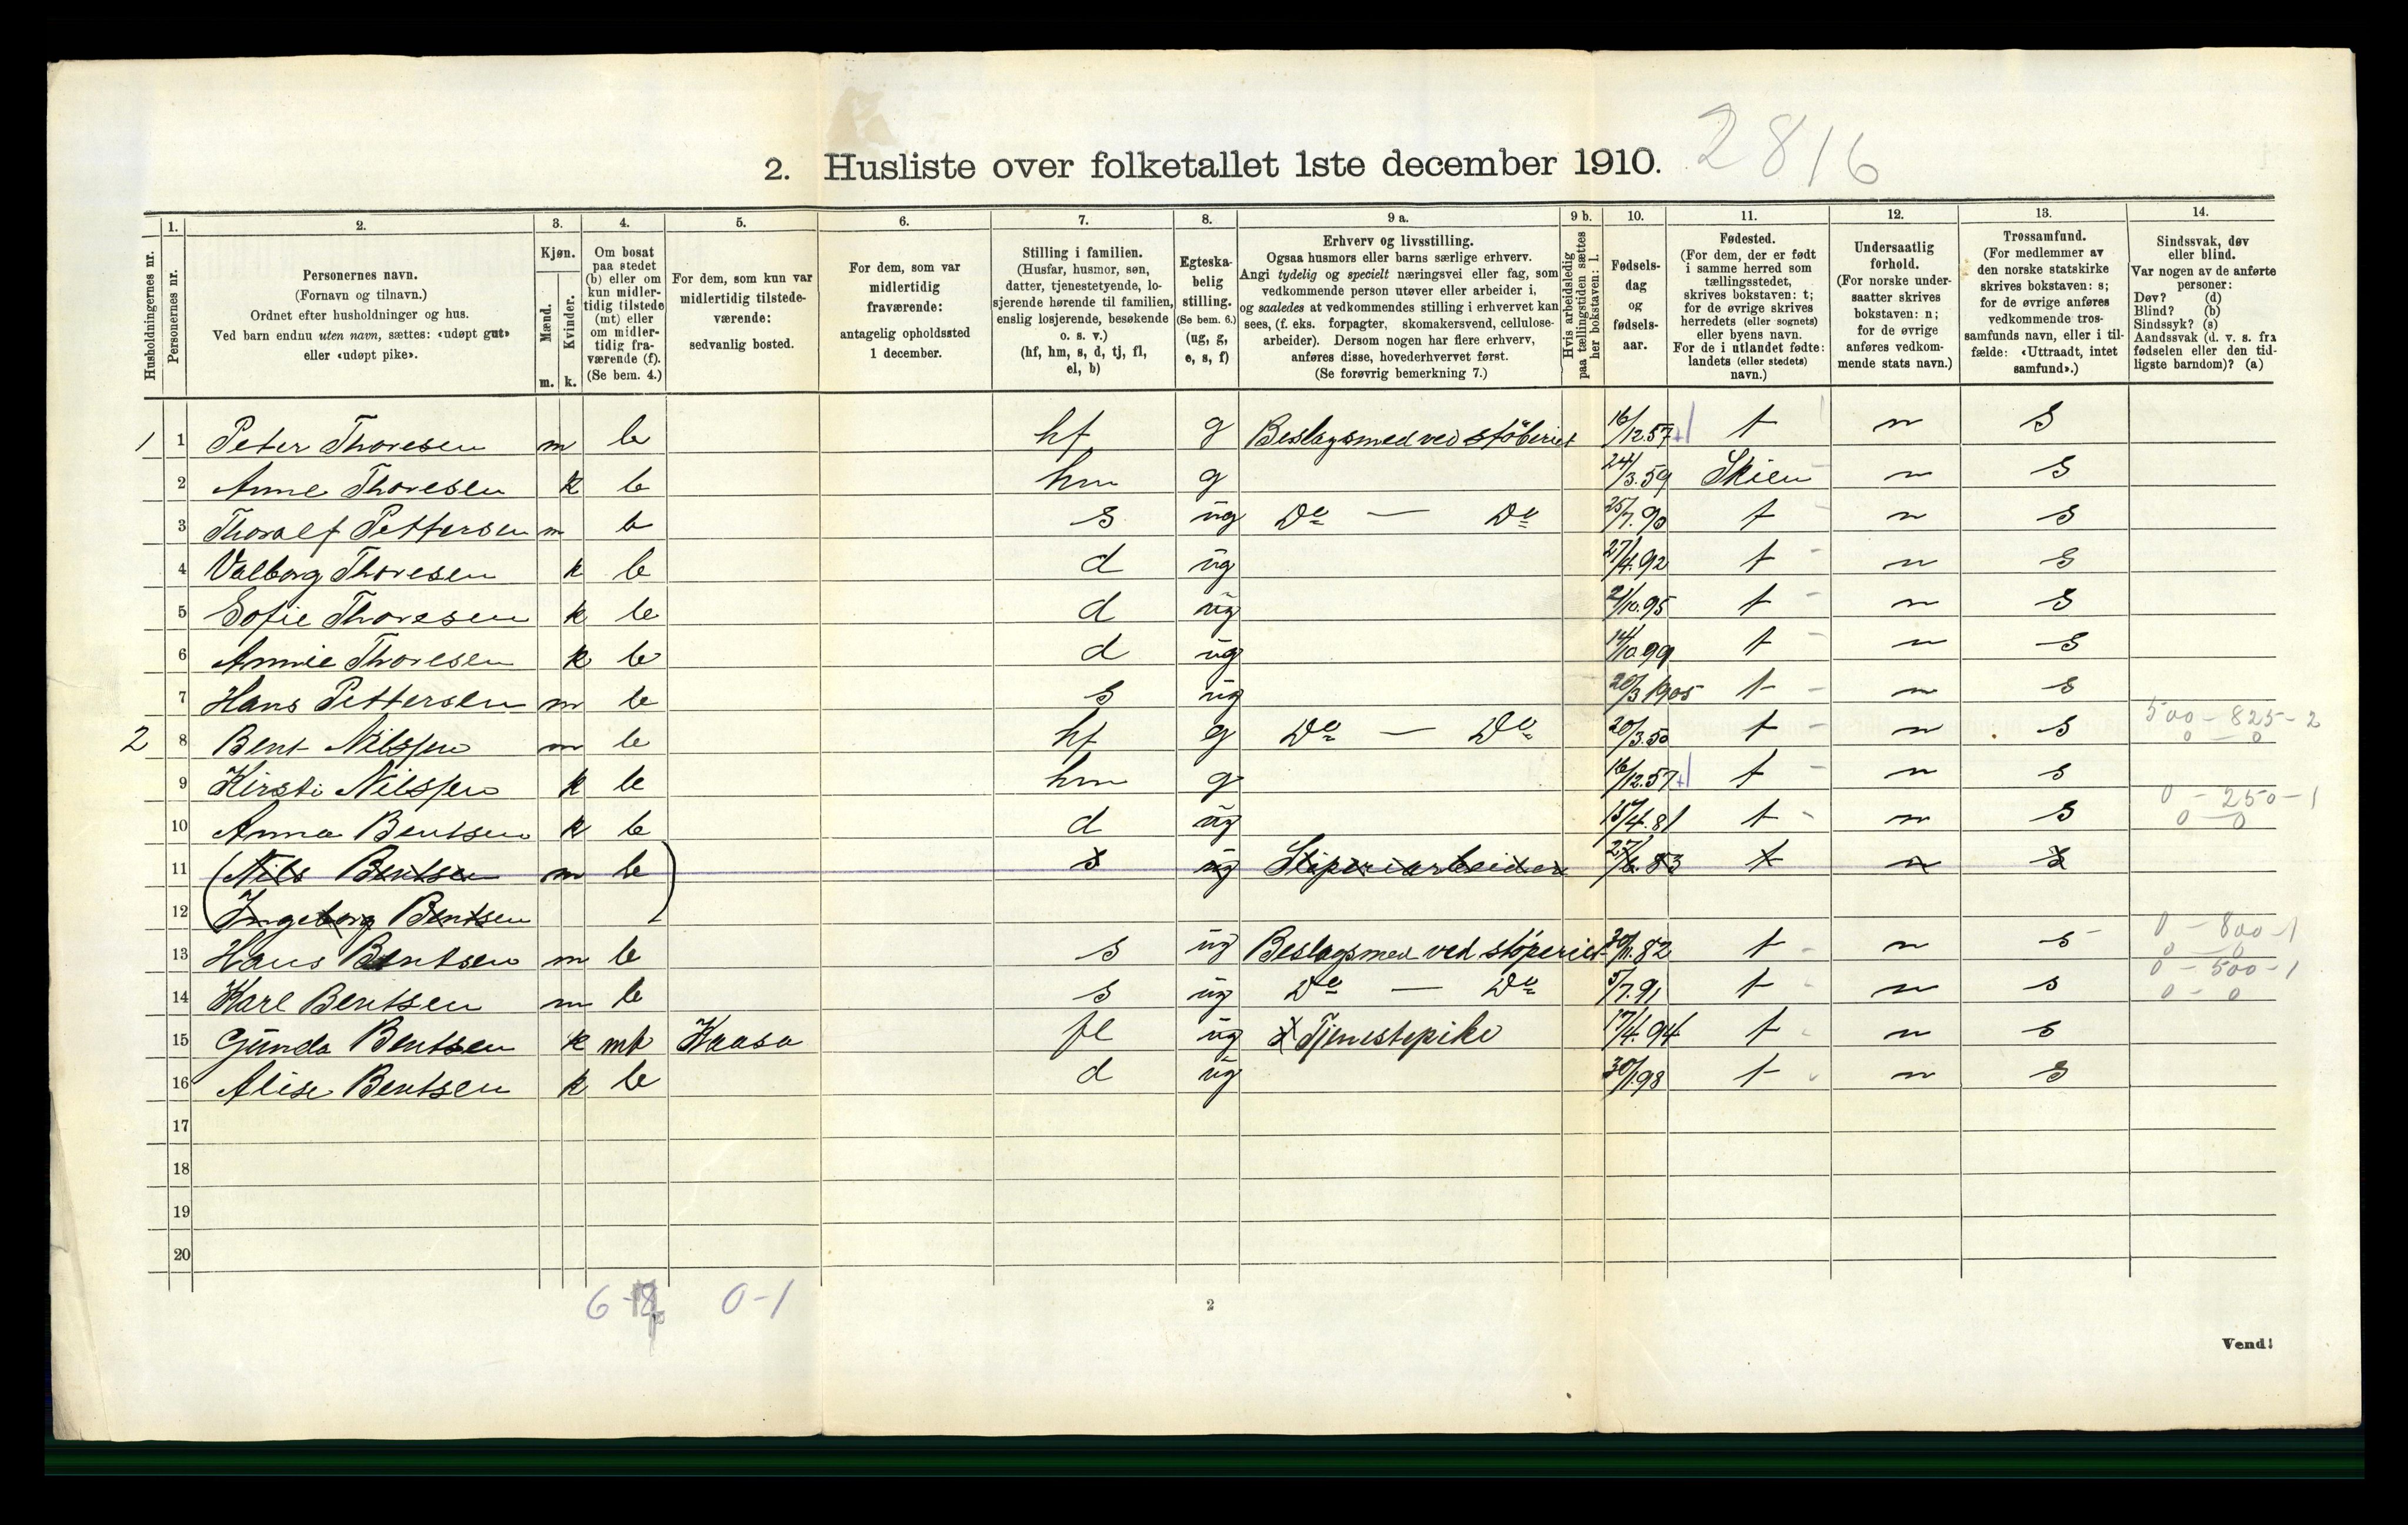 2. Husliste over folketallet 1ste december 1910. 2816
Husholdningernes nr.
1. Personernes nr.
2. Personernes navn. (Fornavn og tilnavn.) Ordnet efter husholdninger og hus. Ved barn endnu uten navn, sættes: «udøpt gut» eller «udøpt pike».
3. Kjøn. Mænd. m. Kvinder. k.
4. Om bosat paa stedet (b) eller om kun midlertidig tilstede (mt) eller om midlertidig fraværende (f). (Se bem. 4.)
5. For dem, som kun var midlertidig tilstedeværende: sedvanlig bosted.
6. For dem, som var midlertidig fraværende: antagelig opholdssted 1 december.
7. Stilling i familien. (Husfar, husmor, søn, datter, tjenestetyende, losjerende hørende til familien, enslig losjerende, besøkende o. s. v.) (hf, hm, s, d, tj, fl, el, b)
8. Egteskabelig stilling. (Se bem. 6.) (ug, g, e, s, f)
9 a. Erhverv og livsstilling. Ogsaa husmors eller barns særlige erhverv. Angi tydelig og specielt næringsvei eller fag, som vedkommende person utøver eller arbeider i, og saaledes at vedkommendes stilling i erhvervet kan sees, (f. eks. forpagter, skomakersvend, cellulosearbeider). Dersom nogen har flere erhverv, anføres disse, hovederhvervet først. (Se forøvrig bemerkning 7.)
9 b. Hvis arbeidsledig paa tællingstiden sættes her bokstaven: l.
10. Fødselsdag og fødselsaar.
11. Fødested. (For dem, der er født i samme herred som tællingsstedet, skrives bokstaven: t; for de øvrige skrives herredets (eller sognets) eller byens navn. For de i utlandet fødte: landets (eller stedets) navn.)
12. Undersaatlig forhold. (For norske undersaatter skrives bokstaven: n; for de øvrige anføres vedkommende stats navn.)
13. Trossamfund. (For medlemmer av den norske statskirke skrives bokstaven: s; for de øvrige anføres vedkommende trossamfunds navn, eller i tilfælde: «Uttraadt, intet samfund».)
14. Sindssvak, døv eller blind. Var nogen av de anførte personer: Døv? (d) Blind? (b) Sindssyk? (s) Aandssvak (d. v. s. fra fødselen eller den tidligste barndom)? (a)
1 1 Peter Thoresen m b hf g Beslagsmed ved støberiet 16/12.57 t n s
2 Anne Thoresen k b hm g 24/3.59 Skien n s
3 Thoralf Pettersen m b s ug Do — Do 25/7.90 t n s
4 Valborg Thoresen k b d ug 27/4.92 t n s
5 Sofie Thoresen k b d ug 21/10.95 t n s
6 Annie Thoresen k b d ug 14/10 99 t n s
7 Hans Pettersen m b s ug 20/3 1905 t n s
2 8 Bent Nilssen m b hf g Do — Do 20/3.50 t n s 500 - 825 - 2 0 - 0
9 Kirsti Nilssen k b hm g 16/12.57 t n s
10 Anna Bentsen k b d ug 15/4.81 t n s 0 - 250 - 1 0 - 0
11 (Nils Bentsen m b) s ug Støperiarbeider 27/6.83 t n s
12 Ingeborg Bentsen
13 Hans Bentsen m b s ug Beslagsmed ved støperiet 30/11.82 t n s 0 - 800 - 1 0 - 0
14 Karl Bentsen m b s ug Do — Do 5/7.91 t n s 0 - 500 - 1 0 - 0
15 Gunda Bentsen k mt Kaasa fl ug Tjenestepike 17/4.94 t n s
16 Alise Bentsen k b d ug 30/1.98 t n s
17
18
19
20
6 - 0 - 1
2
Vend!